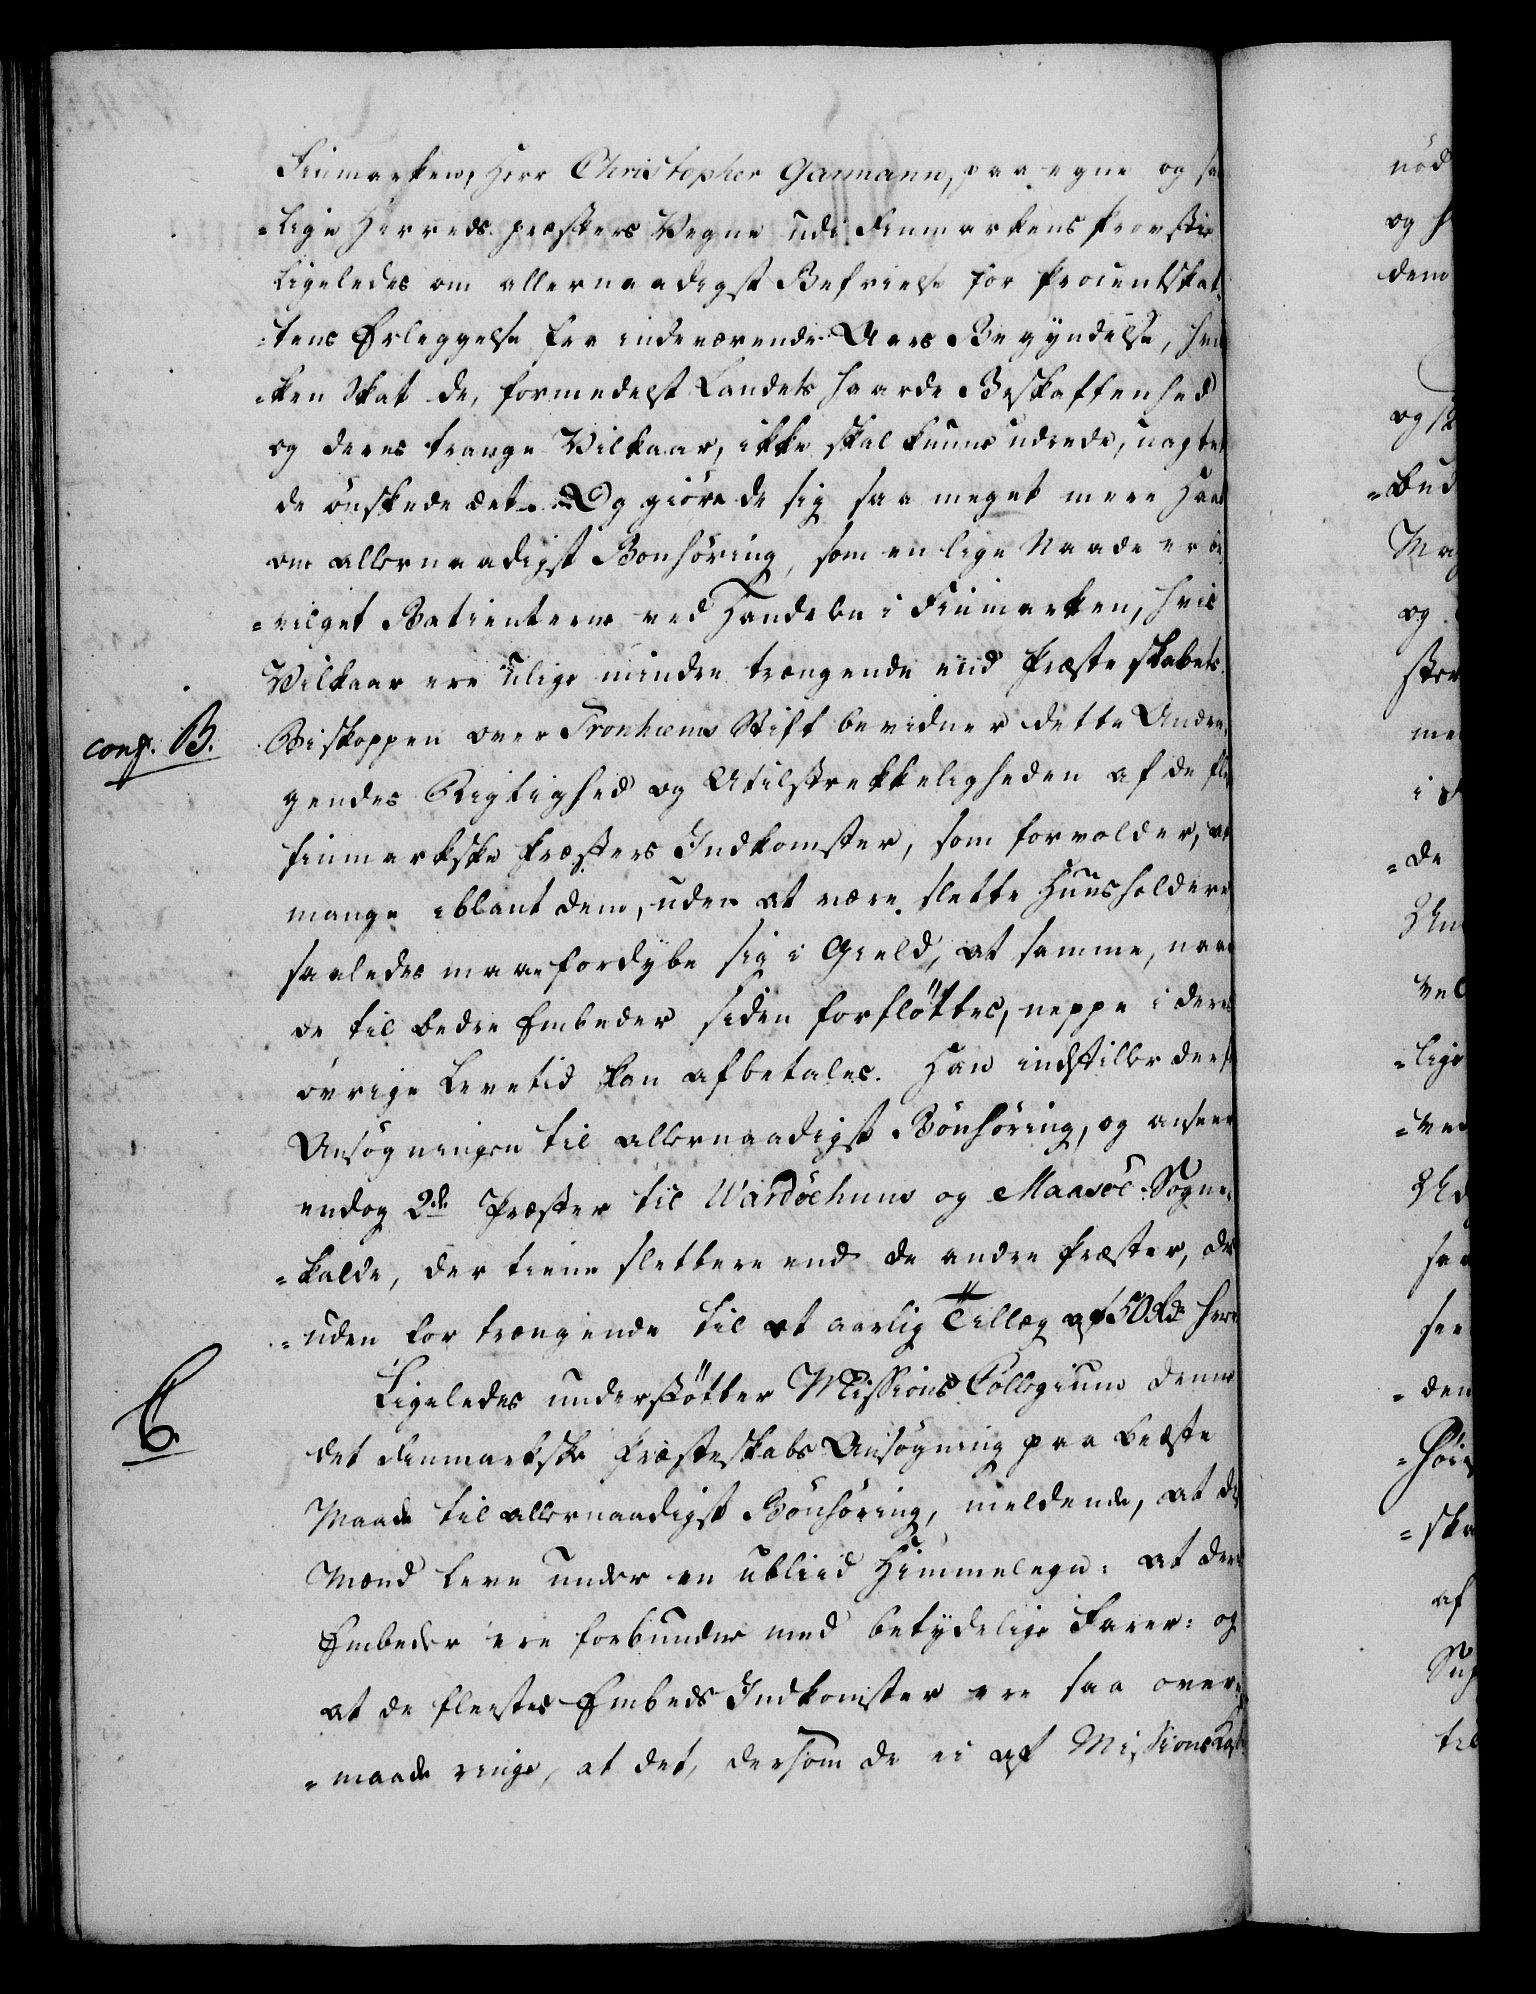 Finmarken, Herr Christopher Garmann, paa egne og sa
=lige Herreds-præsters Vegne udi Finmarkens Provstie
Ligeledes om allernaadigst Befrielse for Procentskat=
=tens Erleggelse fra indeværende Aars Begyndelse, hvil
=ken Skat de, formedelst Landets haarde Beskaffenhed
og deres trange Vilkaar, ikke skal kunne udrede, uagtet
de ønskede det. Og giøre de sig saa meget mere Haab
om allernaadigst Bønhøring, som en lige Naade er be
=vilget Betienterne ved Handelen i Finmarken, hvis
Vilkaar ere ulige mindre trængende end Præsteskabets.
conf. B.
Biskoppen over Tronhiems Stift bevidner dette Andra
gendes Rigtighed og Utilstrekkeligheden af de fle
finmarkske Præsters Indkomster, som forvolder, at
mange iblant dem, uden at være slette Huusholdere,
saaledes maae fordybe sig i Gield, at samme, naar
de til bedre Embeder siden forfløttes, neppe i deres
øvrige Levetid kan afbetales. Han indstiller derfor
Ansøgningen til allernaadigst Bønhøring, og anseer
endog 2de Præster til Wardöehuus og Maasöe Sogne=
=kalde, der tiene slettere end de andre Præster, des
=uden for trængende til et aarlig Tillæg af 50 Rdr hver
C.
Ligeledes understøtter Missions Collegium denne
det finmarkske Præsteskabs Ansøgning paa beste
Maade til allernaadigst Bønhøring, meldende, at de
Mænd leve under en ublid Himmelegn: at deres
Embeder ere forbundne med betydelige Farer: og
at de fleestes Embeds Indkomster ere saa over
=maade ringe, at det, dersom de ei af Missions Kass
nöd
og h
dem
og
=bud
Ma
og
ster
me
i
=de
Um
vel
=lige
=ven
sa
see
=den
=høi
=ska
af
Sup
til